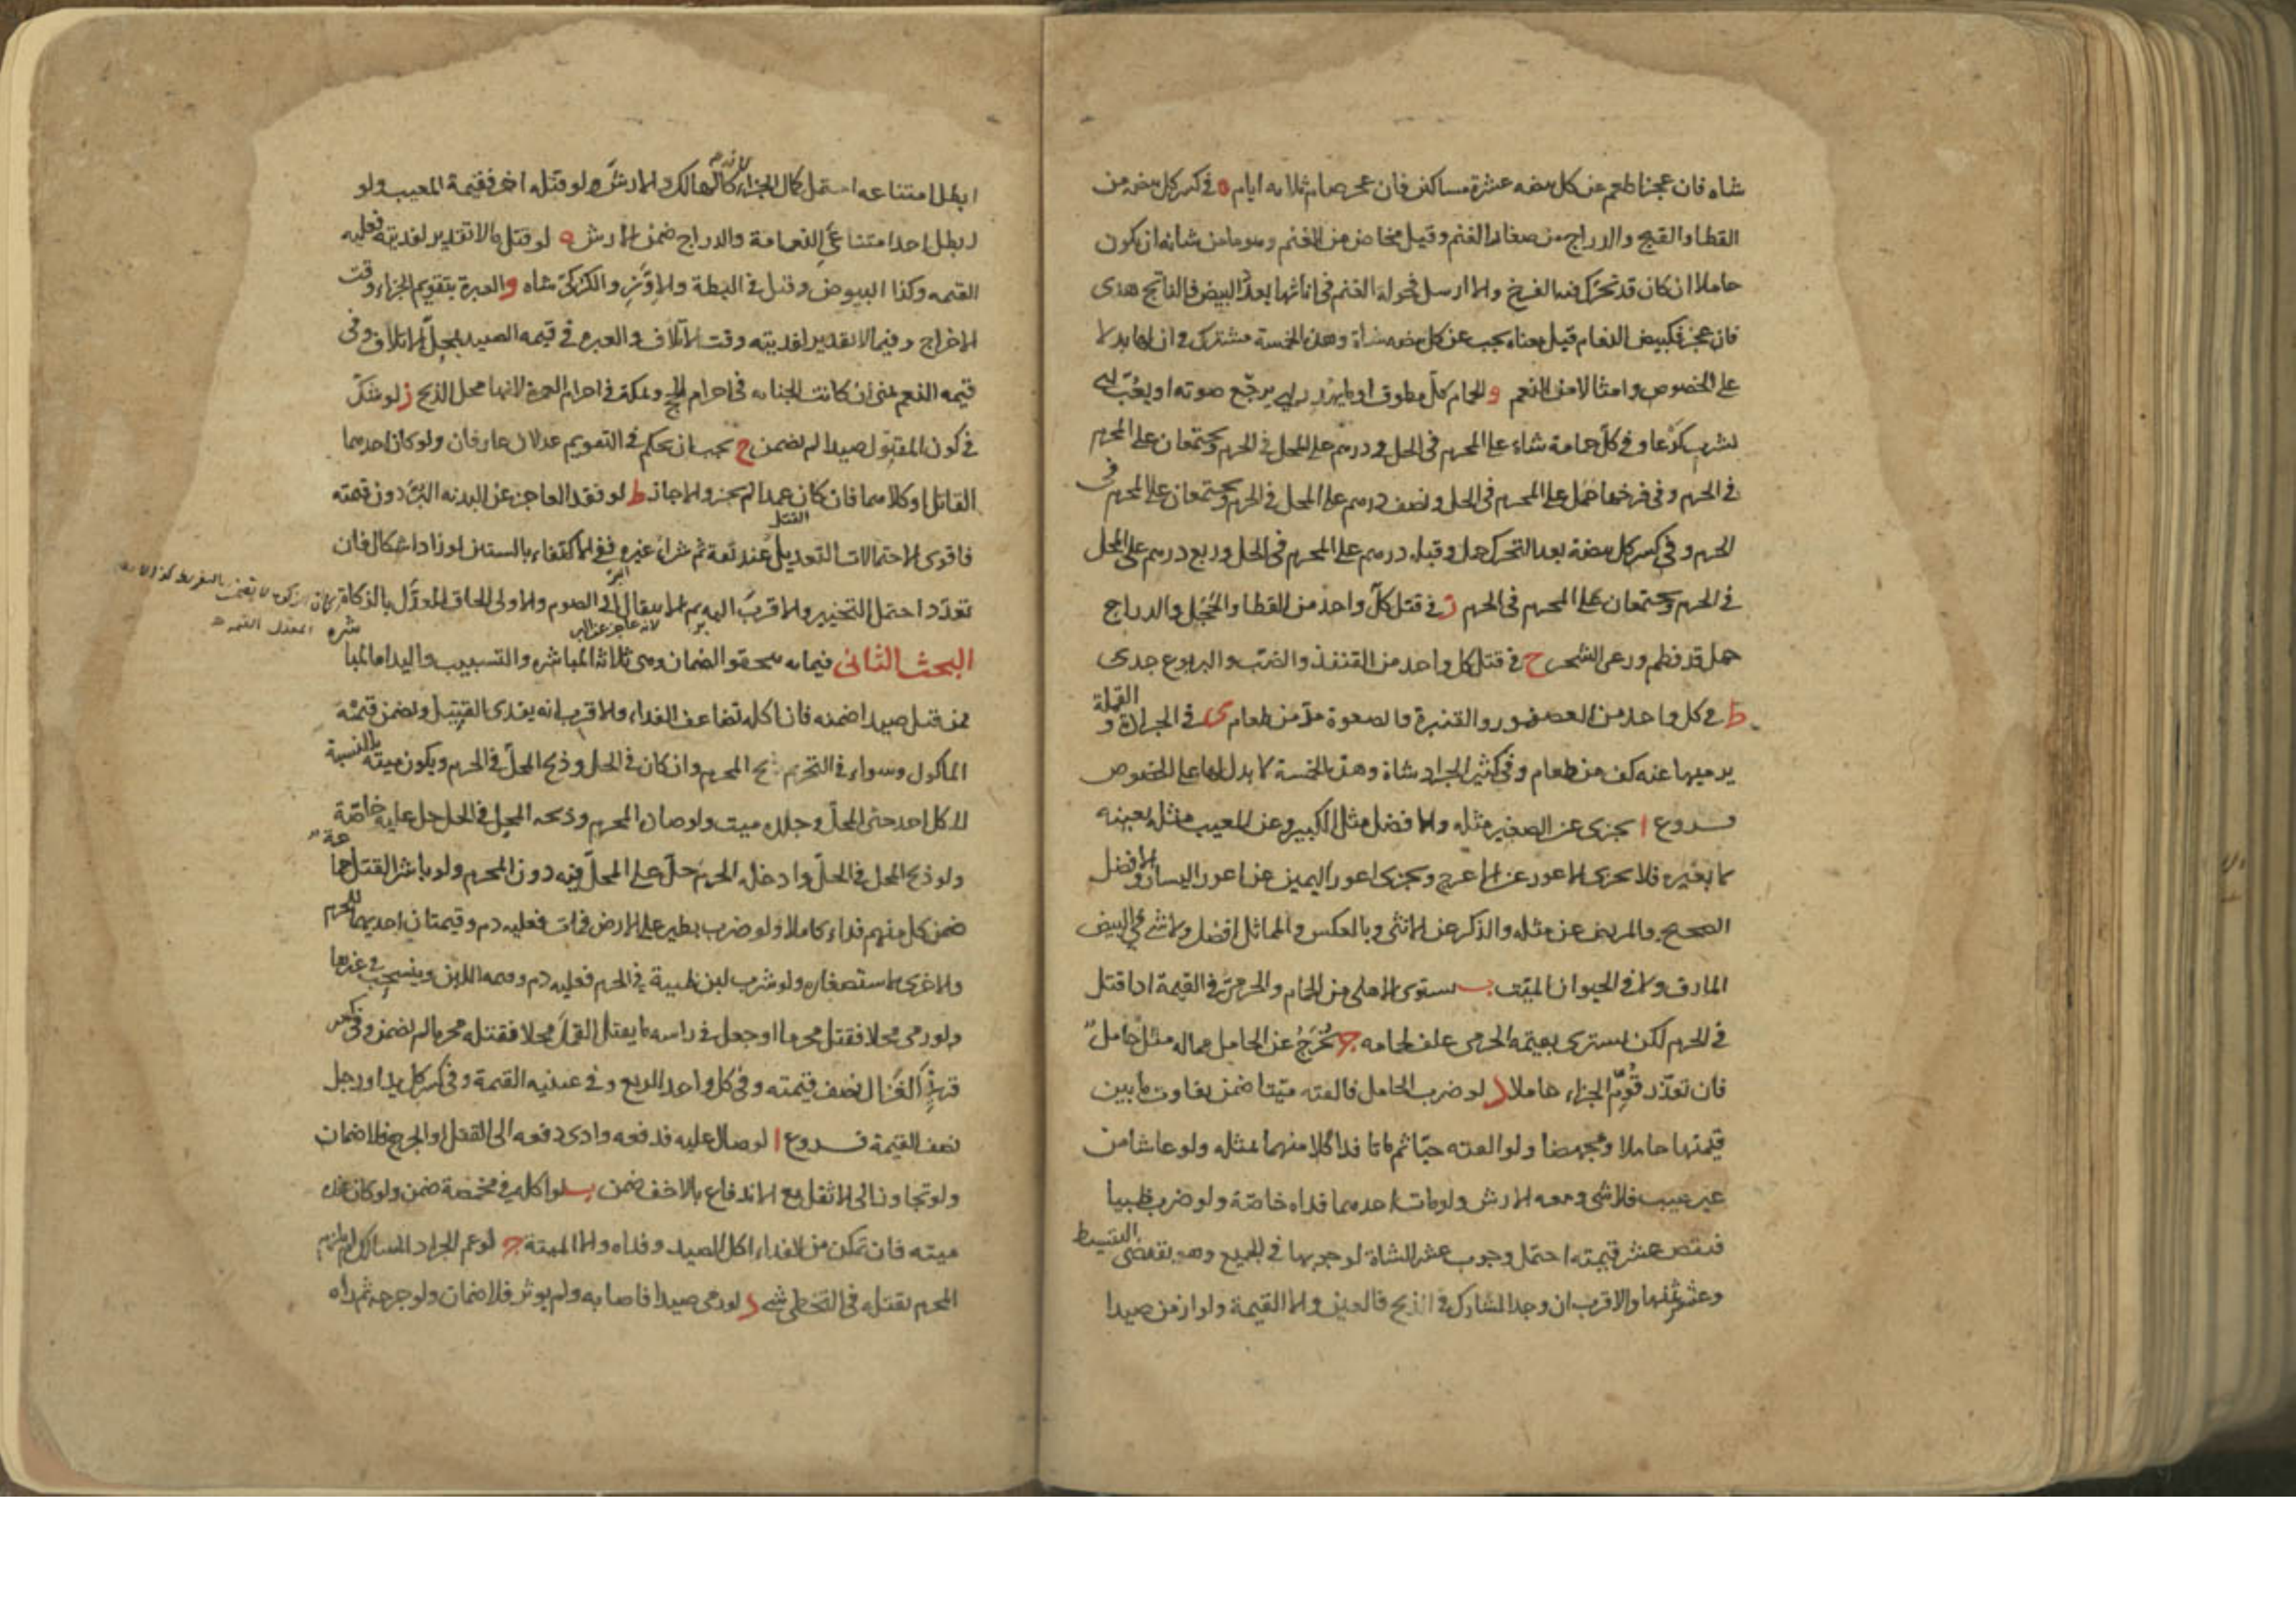 شاه فان عجز اطعم عن كل بيضه عشرة مساكين فان عجز صام ثلاثه ايام ه في كسر كل بيضه من
القطا والقبج والدراج من صغار الغنم وقيل مخاض من الغنم وهو ما من شانه ان يكون
حاملا ان كان قد تحرك فيه الفرخ والا ارسل فحولة الغنم في اناثها بعدد البيض فالناتج هدى
فان عجز فكبيض النعام قيل معناه يجب عن كل بيضه شاة وهذه الخمسة تشترك في ان لها بدلا
على الخصوص وامثالا من النعم و الحمام كل مطوق او ما يهدر اي يرجع صوته او يعب اي
يشرب كرعا وفي كل حمامة شاة على المحرم في الحل ودرهم على المحل في الحرم ويجتمعان على المحرم
في الحرم وفي فرخها حمل على المحرم في الحل ونصف درهم على المحل في الحرم ويجتمعان على المحرم في
الحرم وفي كسر كل بيضة بعد التحرك حمل وقبله درهم على المحرم في الحل وربع درهم على المحل
في الحرم ويجتمعان على المحرم في الحرم ز في قتل كل واحد من القطا والحجل والدراج
حمل قد فطم ورعى الشجر ح في قتل كل واحد من القنفذ والضب واليربوع جدى
ط في كل واحد من العصفور والقنبرة والصعوة مد من طعام ى في الجرادة والقملة
يرميها عنه كف من طعام وفي كثير الجراد شاة وهذه الخمسة لا بدل لها على الخصوص
فروع ا يجزى عن الصغير مثله والافضل مثل الكبير وعن المعيب مثله بعينه
لا بغيره فلا يجزى الاعور عن الاعرج ويجزى اعور اليمين عن اعور اليسار والافضل
الصحيح والمريض عن مثله والذكر عن الانثى وبالعكس والمماثل افضل ولا شئ في البيض
المارق ولا في الحيوان الميت ب يستوى الاهلى من الحمام والحرمى في القيمة اذا قتل
في الحرم لكن يشترى بقيمة الحرمى علف لحمامه ج يخرج عن الحامل مماله مثل حامل
فان تعذر قوم الجزاء حاملا د لو ضرب الحامل فالقته ميتا ضمن تفاوت ما بين
قيمتها حاملا ومجهضا ولو القته حيا ثم ماتا فدا كلا منهما بمثله ولو عاشا من
غير عيب فلا شى ومعه الارش ولو مات احدهما فداه خاصة ولو ضرب ظبيا
فنقص عشر قيمته احتمل وجوب عشر الشاة لوجوبها في الجميع وهو يقتضى التقسيط
وعشر ثمنها والاقرب ان وجد المشارك في الذبح فالعين والا القيمة ولو ازمن صيدا
ابطل امتناعه احتمل كمال الجزاء لانه كالهالك والارش ولو قتله اخر فقيمة المعيب ولو
ابطل احد امتناعى النعامة والدراج ضمن الارش ه لو قتل ما لا تقدير لفديته فعليه
القيمه وكذا البيوض وقيل في البطة والاوز والكركى شاه و العبرة بتقويم الجزاء وقت
الاخراج وفيما لا تقدير لفديته وقت الاتلاف والعبره في قيمه الصيد بمحل الاتلاف وفى
قيمه النعم بمنى ان كانت الجنايه في احرام الحج وبمكة في احرام العمرة لانها محل الذبح ز لو شك
في كون المقتول صيدا لم يضمن ح يجب ان يحكم في التقويم عدلان عارفان ولو كان احدهما
القاتل او كلاهما فان كان عمدا لم يجز والا جاز ط لو فقد العاجز عن البدنه البر دون قيمته
فاقوى الاحتمالات التعديل عند ثقة ثم شراء غيره ففى الاكتفاء بالستين لو زاد اشكال فان
تعدد احتمل التخيير والاقرب اليه ثم الانتقال الى الصوم والاولى الحاق المعدل بالزكاة
لانه عاجز عن البر
البحث الثانى فيما به يتحقق الضمان وهى ثلاثة المباشره والتسبيب واليد اما المباشره
فمن قتل صيدا ضمنه فان اكله تضاعف الفداء والاقرب انه يفدى القتيل ويضمن قيمة
الماكول وسواء في التحريم ذبح المحرم وان كان في الحل وذبح المحل في الحرم ويكون ميته بالنسبة
الى كل احد حتى المحل وجلده ميت ولو صاده المحرم وذبحه المحل في الحل حل عليه خاصة
ولو ذبح المحل في الحل وادخله الحرم حل على المحل فيه دون المحرم ولو باشر القتل جماعة
ضمن كل منهم فداء كاملا ولو ضرب بطير على الارض فمات فعليه دم وقيمتان احديهما للحرم
والاخرى لاستصغاره ولو شرب لبن ظبية في الحرم فعليه دم وقيمه اللبن وينسحب في غيرها
ولو رمى محلا فقتل محرما او جعل في راسه ما يقتل القمل محلا فقتله محرما لم يضمن وفى كسر
قرنى الغزال نصف قيمته وفى كل واحد الربع وفي عينيه القيمة وفى كسر كل يد او رجل
نصف القيمة فروع ا لو صال عليه فدفعه وادى دفعه الى القتل او الجرح فلا ضمان
ولو تجاوز الى الاثقل مع الاندفاع بالاخف ضمن ب لو اكله في مخمصة ضمن ولو كان عنده
ميته فان تمكن من الفداء اكل الصيد وفداه والا الميتة ج لو عم الجراد المسالك لم يلزم
المحرم بقتله في التخطى شئ د لو رمى صيدا فاصابه ولم يوثر فلا ضمان ولو جرحه ثم راه